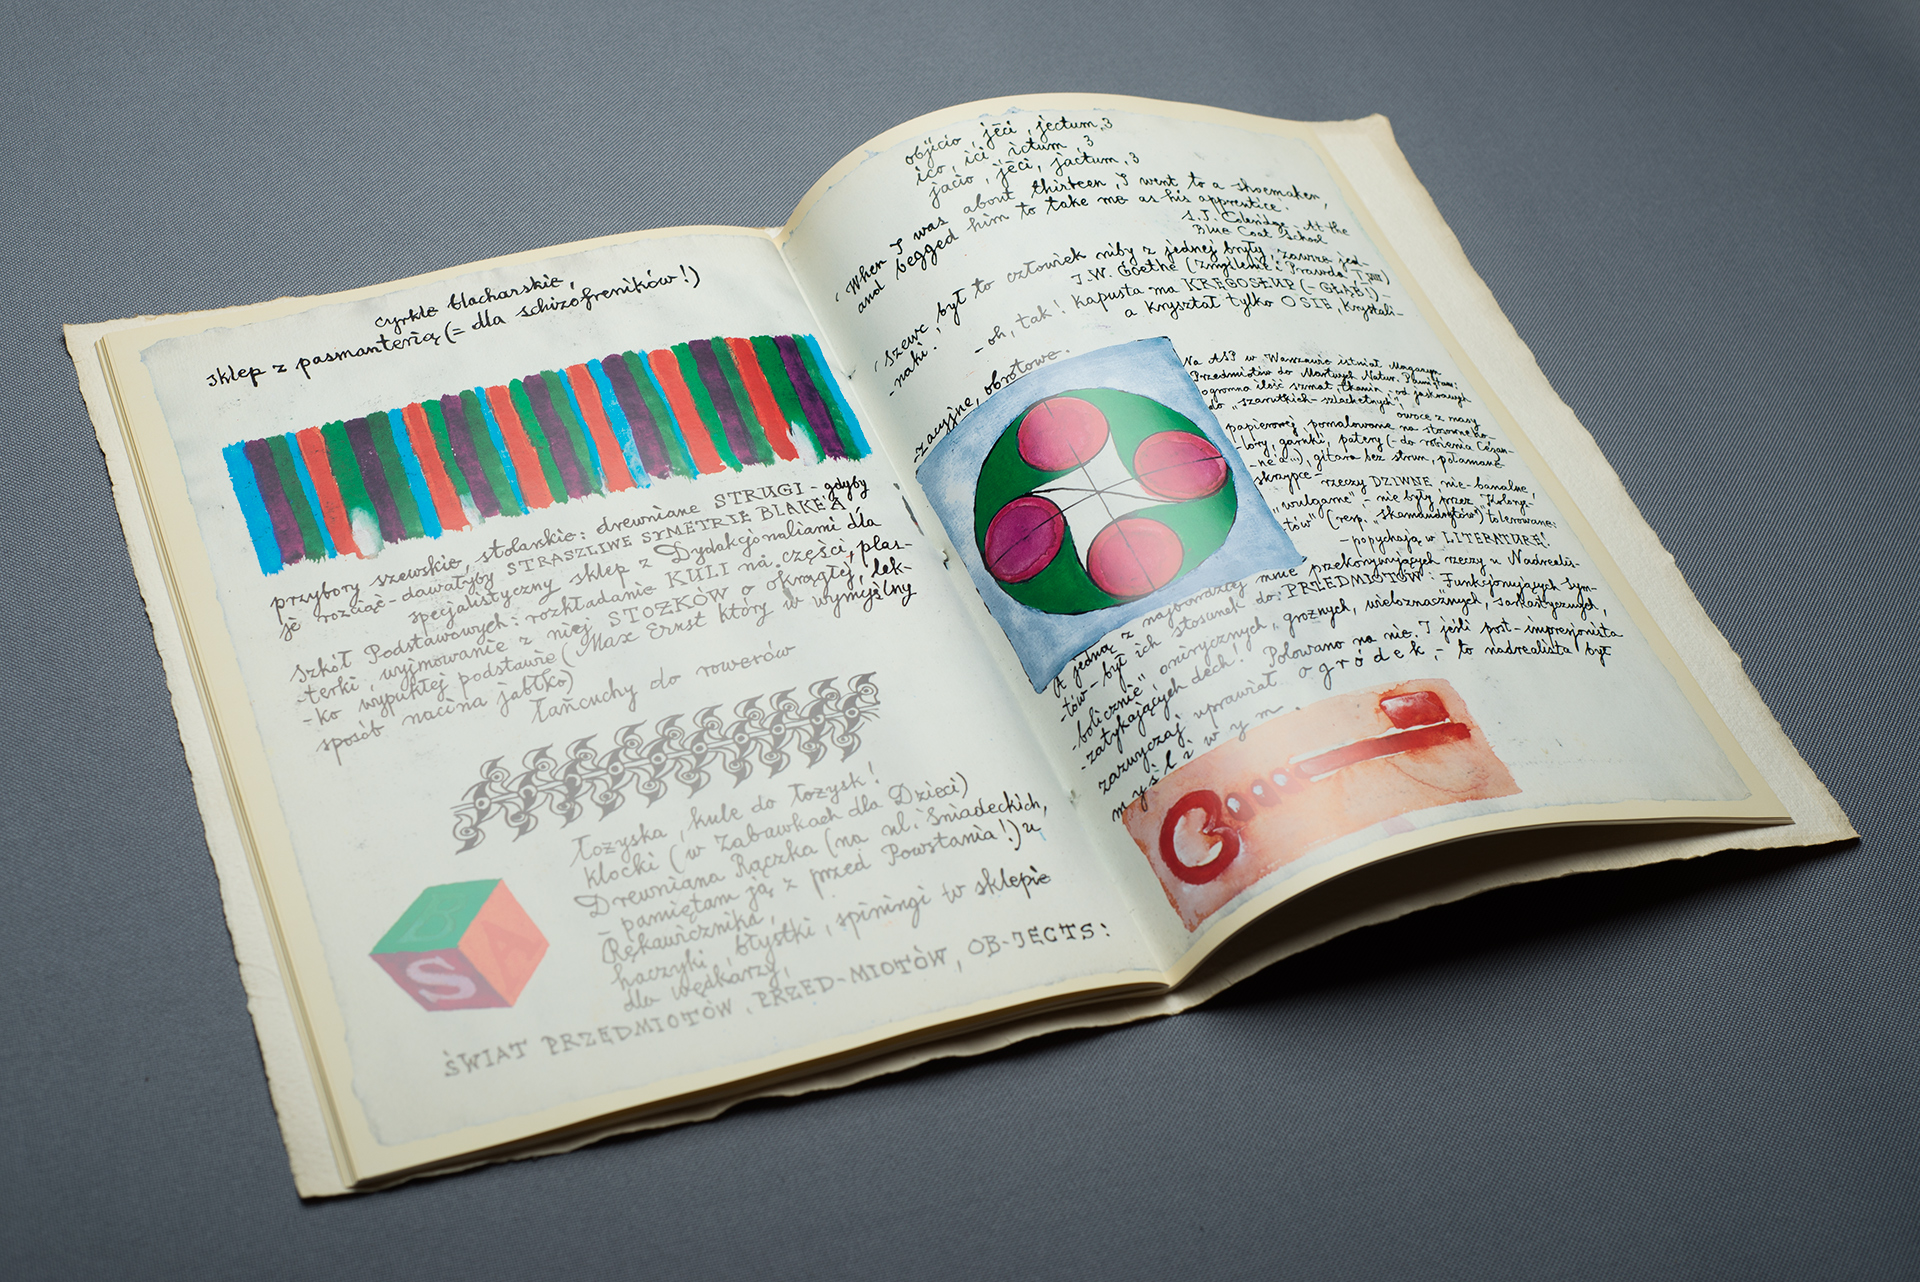 cyrkle blacharskie,
sklep z pasmanterią (= dla schizofreników!)
przybory szewskie, stolarskie: drewniane STRUGI - gdyby
je rozciąć - dawałyby STRASZLIWE SYMETRIE BLAKE'A,
specjalistyczny sklep z Dydakcjonaliami dla
Szkół Podstawowych: rozkładanie KULI na części, plas-
-terki, wyjmowanie z niej STOŻKÓW o okrągłej, lek-
-ko wypukłej podstawie (Max Ernst który w wymyślny
sposób nacina jabłko)
łańcuchy do rowerów
łożyska, kule do łożysk!
klocki (w Zabawkach dla Dzieci)
Drewniana Rączka (na ul. Śniadeckich,
- pamiętam ją z przed Powstania!) u
Rękawicznika,
haczyki, błystki, spiningi w sklepie
dla wędkarzy,
ŚWIAT PRZEDMIOTÓW, PRZED-MIOTÓW, OB-JECTS:
B
S
A
objicio, jēci, jectum, 3
ico, ici, ictum, 3
jacio, jēci, jactum, 3
'When I was about thirteen, I went to a shoemaker,
and begged him to take me as his apprentice.
S.J. Coleridge. At the
Blue Coat School
'Szewc, był to człowiek niby z jednej bryły, zawsze jed-
-naki.' J.W. Goethe (Zmyślenie i Prawda T. III)
- oh, tak! Kapusta ma KRĘGOSŁUP (- GŁĄB!) -
a kryształ tylko OSIE, krystali-
-zacyjne, obrotowe.
Na ASP w Warszawie istniał Magazyn
Przedmiotów do Martwych Natur. Pamiętam:
ogromna ilość szmat, tkanin, od jaskrawych
do "szarutkich-szlachetnych",
owoce z masy
papierowej, pomalowane na stosowne ko-
-lory, garnki, patery (- do robienia Cézan-
-ne'a...), gitara bez strun, połamane
skrzypce - rzeczy DZIWNE, nie-banalne,
"wulgarne" - nie były przez "Koloryz-
-tów" (resp. "skamandrytów") tolerowane:
- popychają w LITERATURĘ!
A jedną z najbardziej mnie przekonywujących rzeczy u Nadrealis-
-tów - był ich stosunek do: PRZEDMIOTÓW: Funkcjonujących Sym-
-bolicznie", onirycznych, groźnych, wieloznacznych, sarkastycznych,
-zatykających dech! Polowano na nie. I jeśli post-impresjonista
zazwyczaj uprawiał ogródek, - to nadrealista był
myśliwym.